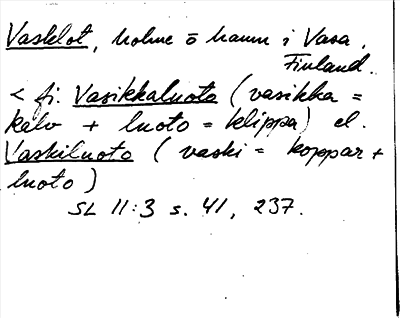 Vasklot, holme o hamn i Vasa,
Finland.
< fi. Vasikkaluoto (vasikka =
kalv + luoto = klippa) el.
Vaskiluoto (vaski = koppar +
luoto)
SL 11:3 s. 41, 237.